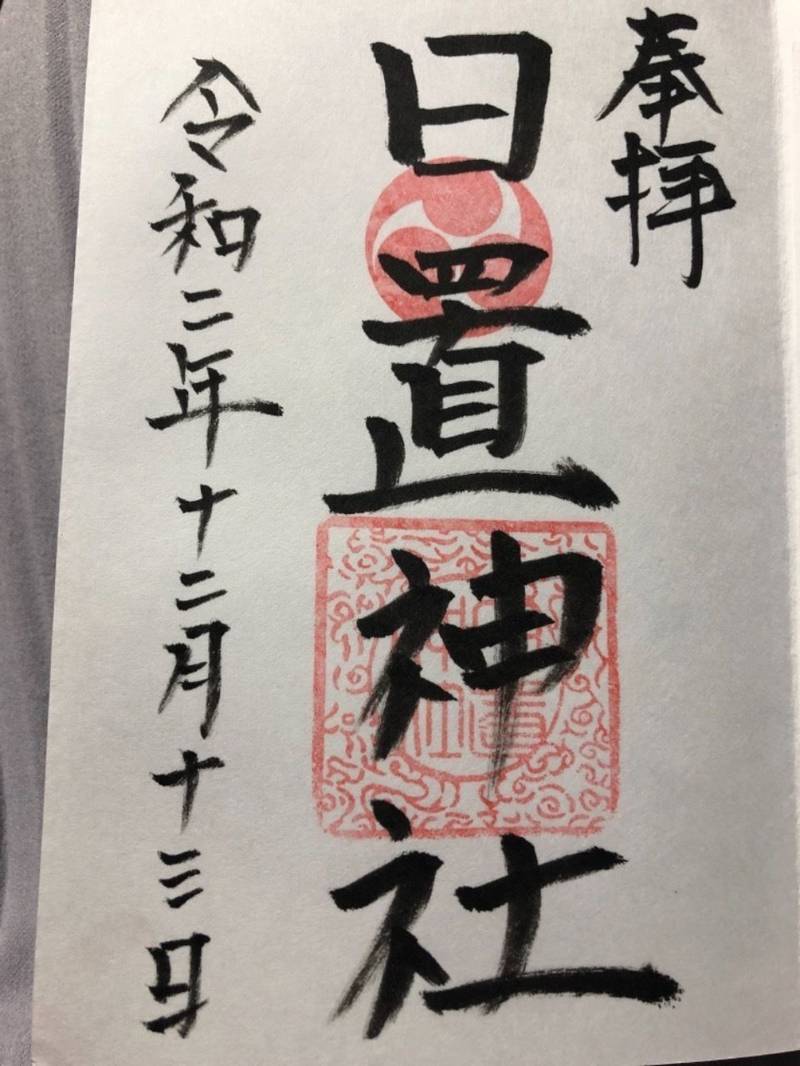 奉拝
日置神社
令和二年十二月十三日